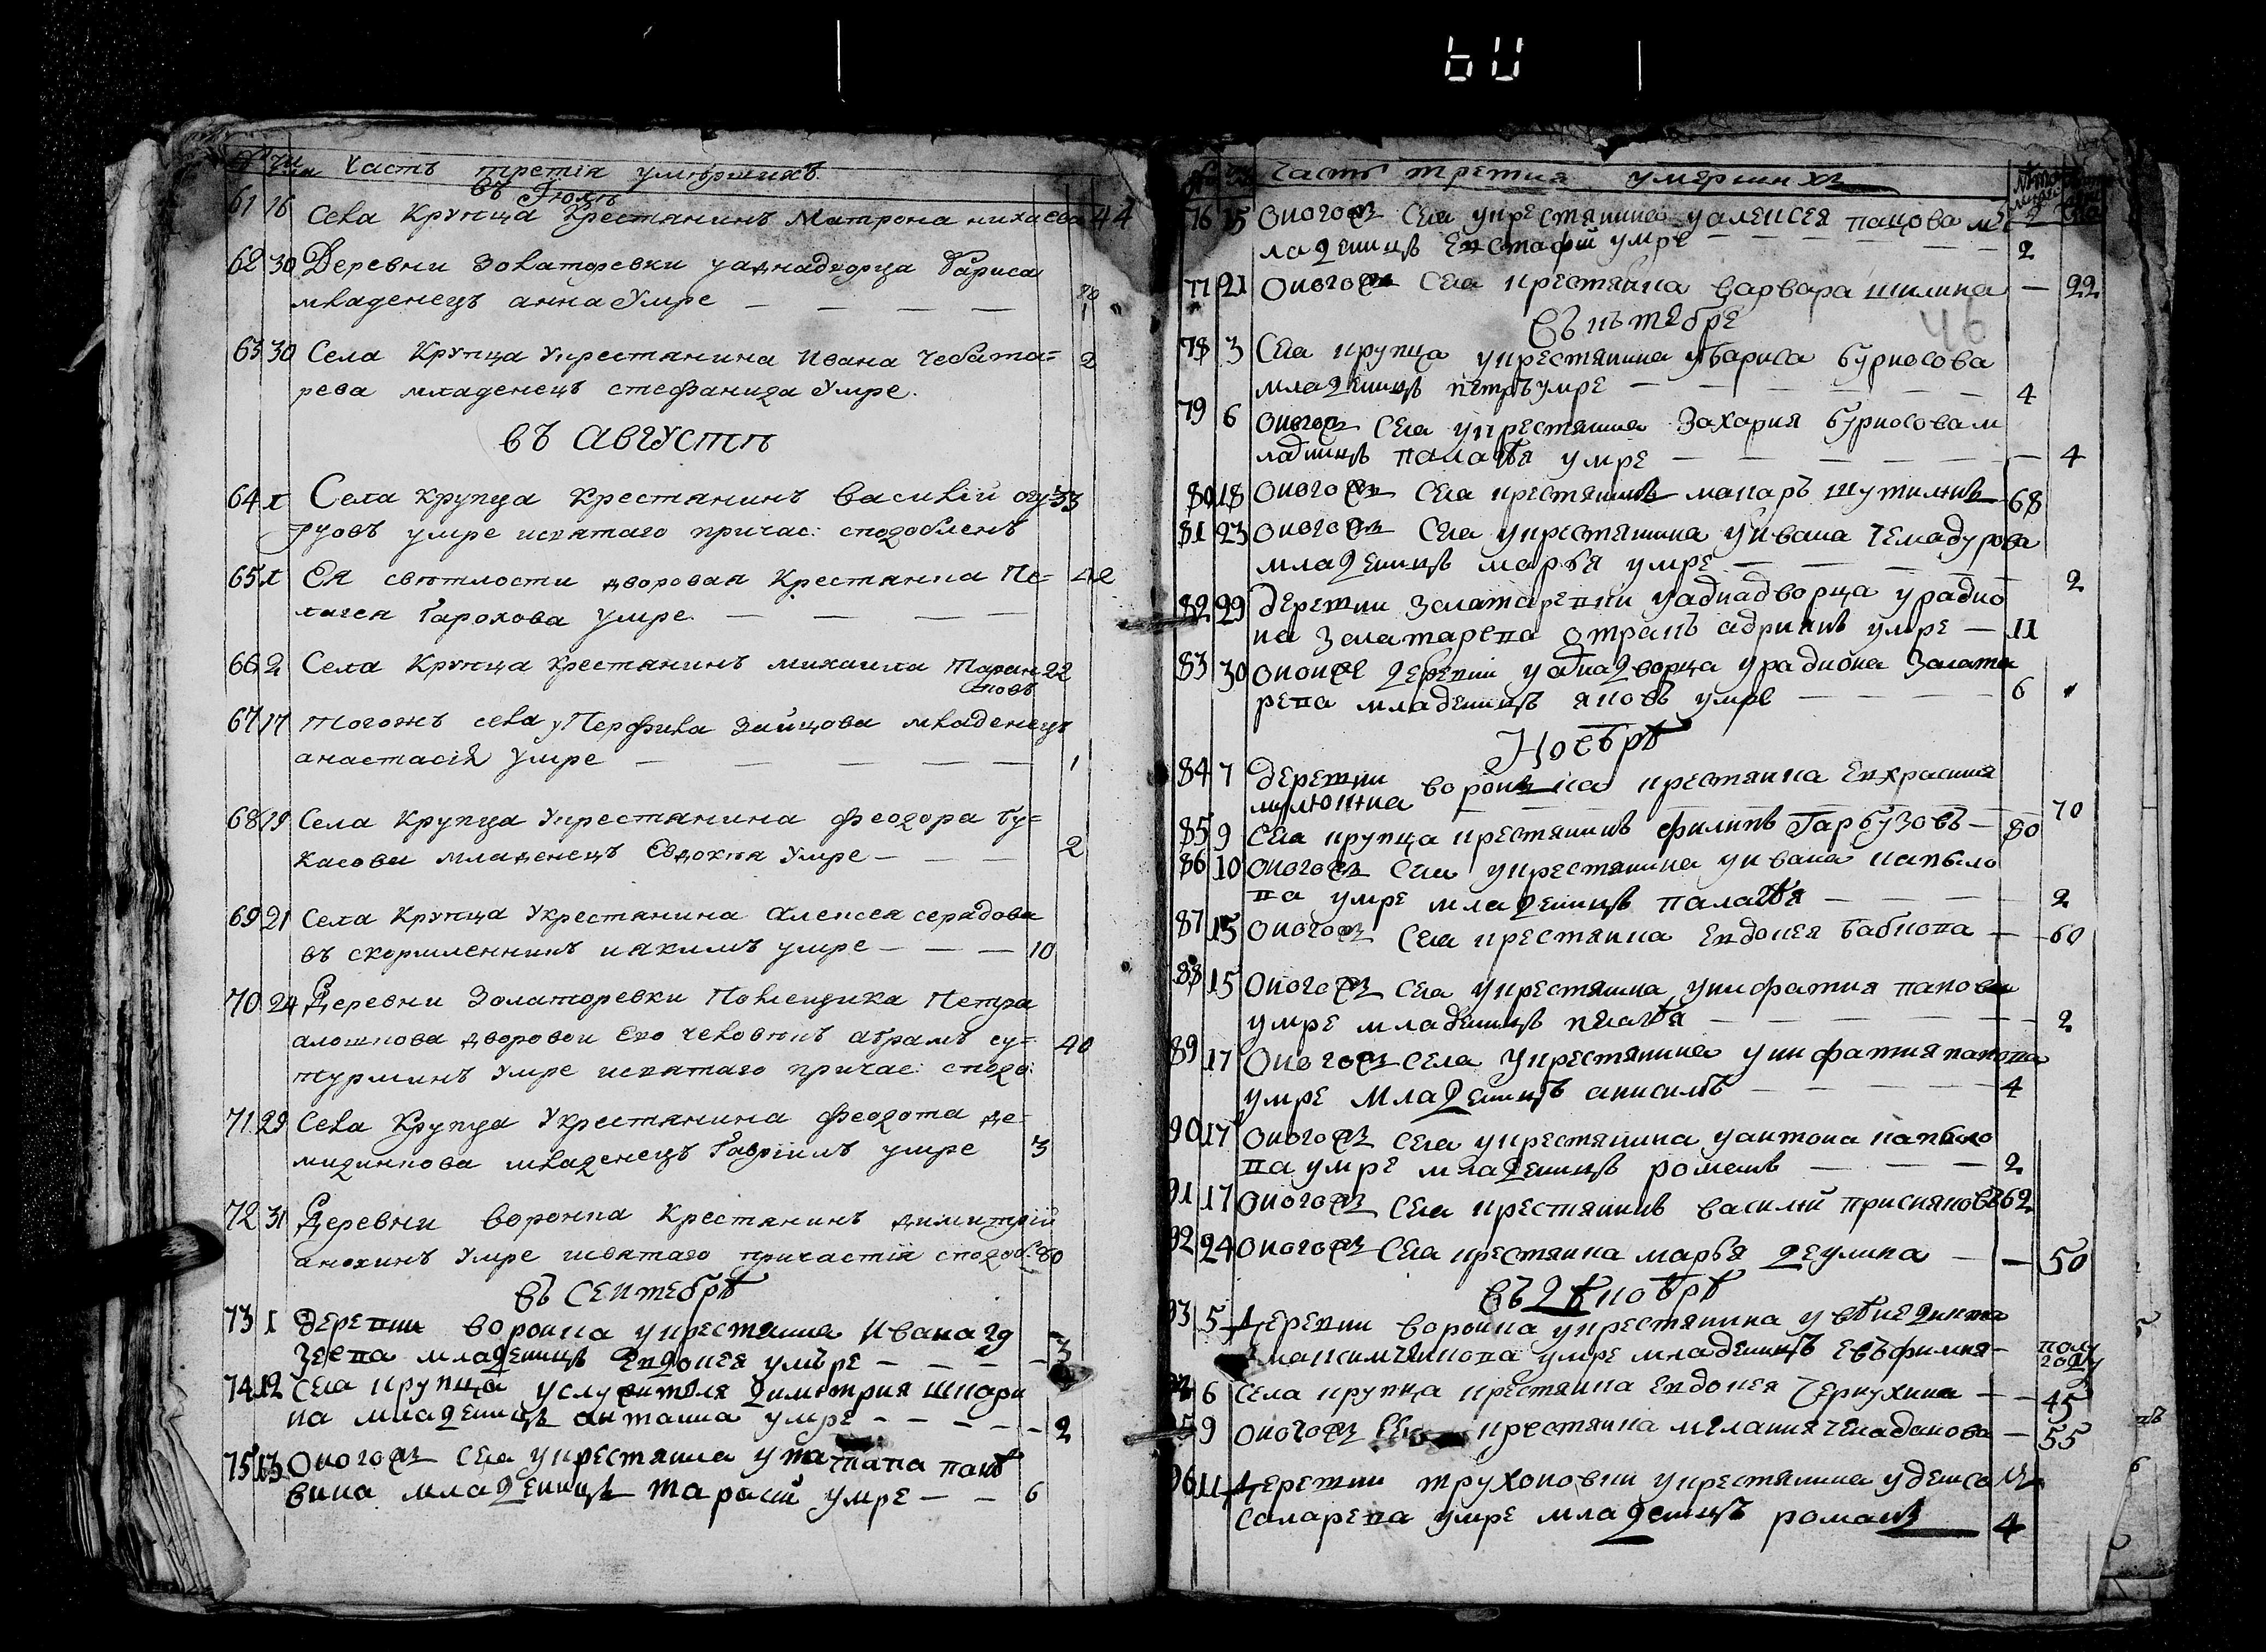 60
№ Чи сла Часть третiя умѣршихъ
въ Июлѣ
61 16 Села Крупца Крестянинъ Матрона нихаева 44
62 30 Деревни Золаторевки уаднадворца Бариса
младенецъ анна Умре — — — — 1
63 30 Села Крупца Укрестянина Ивана Чебата= 2
рева младенецъ стефанида Умре.
въ Августѣ
64 1 Села Крупца Крестянинъ Василiй огу= 33
рцовъ умре исвятаго причас: сподобленъ
65 1 Ея свѣтлости дворовая Крестянка Пе= 42
лагея Гарохова Умре — — —
66 2 Села Крупца Крестянинъ михаила Таран 22
67 17 Тогожъ села у Перфила Зайцова младенецъ
анастасiя Умре — — — — — 1
68 19 Села Крупца Укрестянина Феодора бу=
касова младенецъ Евдокѣя Умре — — — 2
69 21 Села Крупца Укрестянина Алексея серадова
въ скормленникъ иякимъ умре — — — 10
70 24 Деревни Золаторевки Помещика Петра
алошкова дворовои Его человѣкъ абрамъ су= 40
турминъ Умре исвятаго причас: сподо:
71 29 Села Крупца Укрестянина Феодота де=
мидинкова младенецъ Гаврiилъ умре 3
72 31 Деревни воронка Крестянинъ димитрiй
анохинъ Умре исвятаго причастiя сподоб: 80
въ Сентебрѣ
73 1 Деревни воронка укрестянина Ивана гд
зеева младенецъ Евдокея умѣре — — — — 3
74 12 Села крупца услужителя димитрия шпари
на младенецъ антанина умре — — — — 2
75 13 Оногожъ Села укрестянина
вина младенецъ Тарасiй умре — — 6
№ Часть третия умершихъ
76 15 Оногожъ Села укрестянина уалексея пацова м 2
ладенецъ Евстафiй умре — — — — — 2
77 21 Оногожъ Села крестянка варвара шилина — 22
46
78 3 Села крупца укрестянина убариса бурносова
младенецъ петръ умре — — — — — 4
79 6 Оногожъ Села укрестянина Захария бурносова м
ладинцъ палагѣя умре — — — — — 4
80 18 Оногожъ Села крестянинъ макаръ шутилкинъ 68
81 23 Оногожъ Села укрестянина уивана Чемадурова
младенецъ марья умре — — — — 2
82 29 деревни Залатаревки уаднадворца урадио
на Залатарева отракъ адриянъ умре — 11
83 30 Оноиже деревни уаднадворца урадиона Залата
рева младенецъ яковъ умре — — — 6
Ноебрѣ
84 7 деревни воронка крестянка Евхрасиния
милюкина — — — — 70
85 9 Села крупца крестянинъ филипъ Гарбузовъ — 80
86 10 Оногожъ Села укрестянина уивана капыло
ва умре младенецъ палагѣя — — — — 2
87 15 Оногожъ Села крестянка Евдокея бабкова — 60
88 15 Оногожъ Села укрестянина уинфатия папова
умре младенецъ пелагѣя — — — — 2
89 17 Оногожъ Села Укрестянина уинфатия папова
умре Младенецъ анисимъ — — — — — 4
90 17 Оногожъ Села укрестянина уантона капыло
ва умре младенецъ романъ — — — 2
91 17 Оногожъ Села крестянинъ василiй присняковъ 62
92 24 Оногожъ Села крестянка марья деулина — — 50
въ дѣкобрѣ
93 5 Деревни воронка укрестянина увѣнедикта
максимчинкова умре младенецъ Евъфимия — полу году
6 Села крупца крестянка Евдокея Чернухина — — 45
95 9 Оногожъ Села крестянка мелания чекаданова — 55
96 11 Деревни трухоновки укрестянина уденса
Саларева умре младенецъ романъ 4